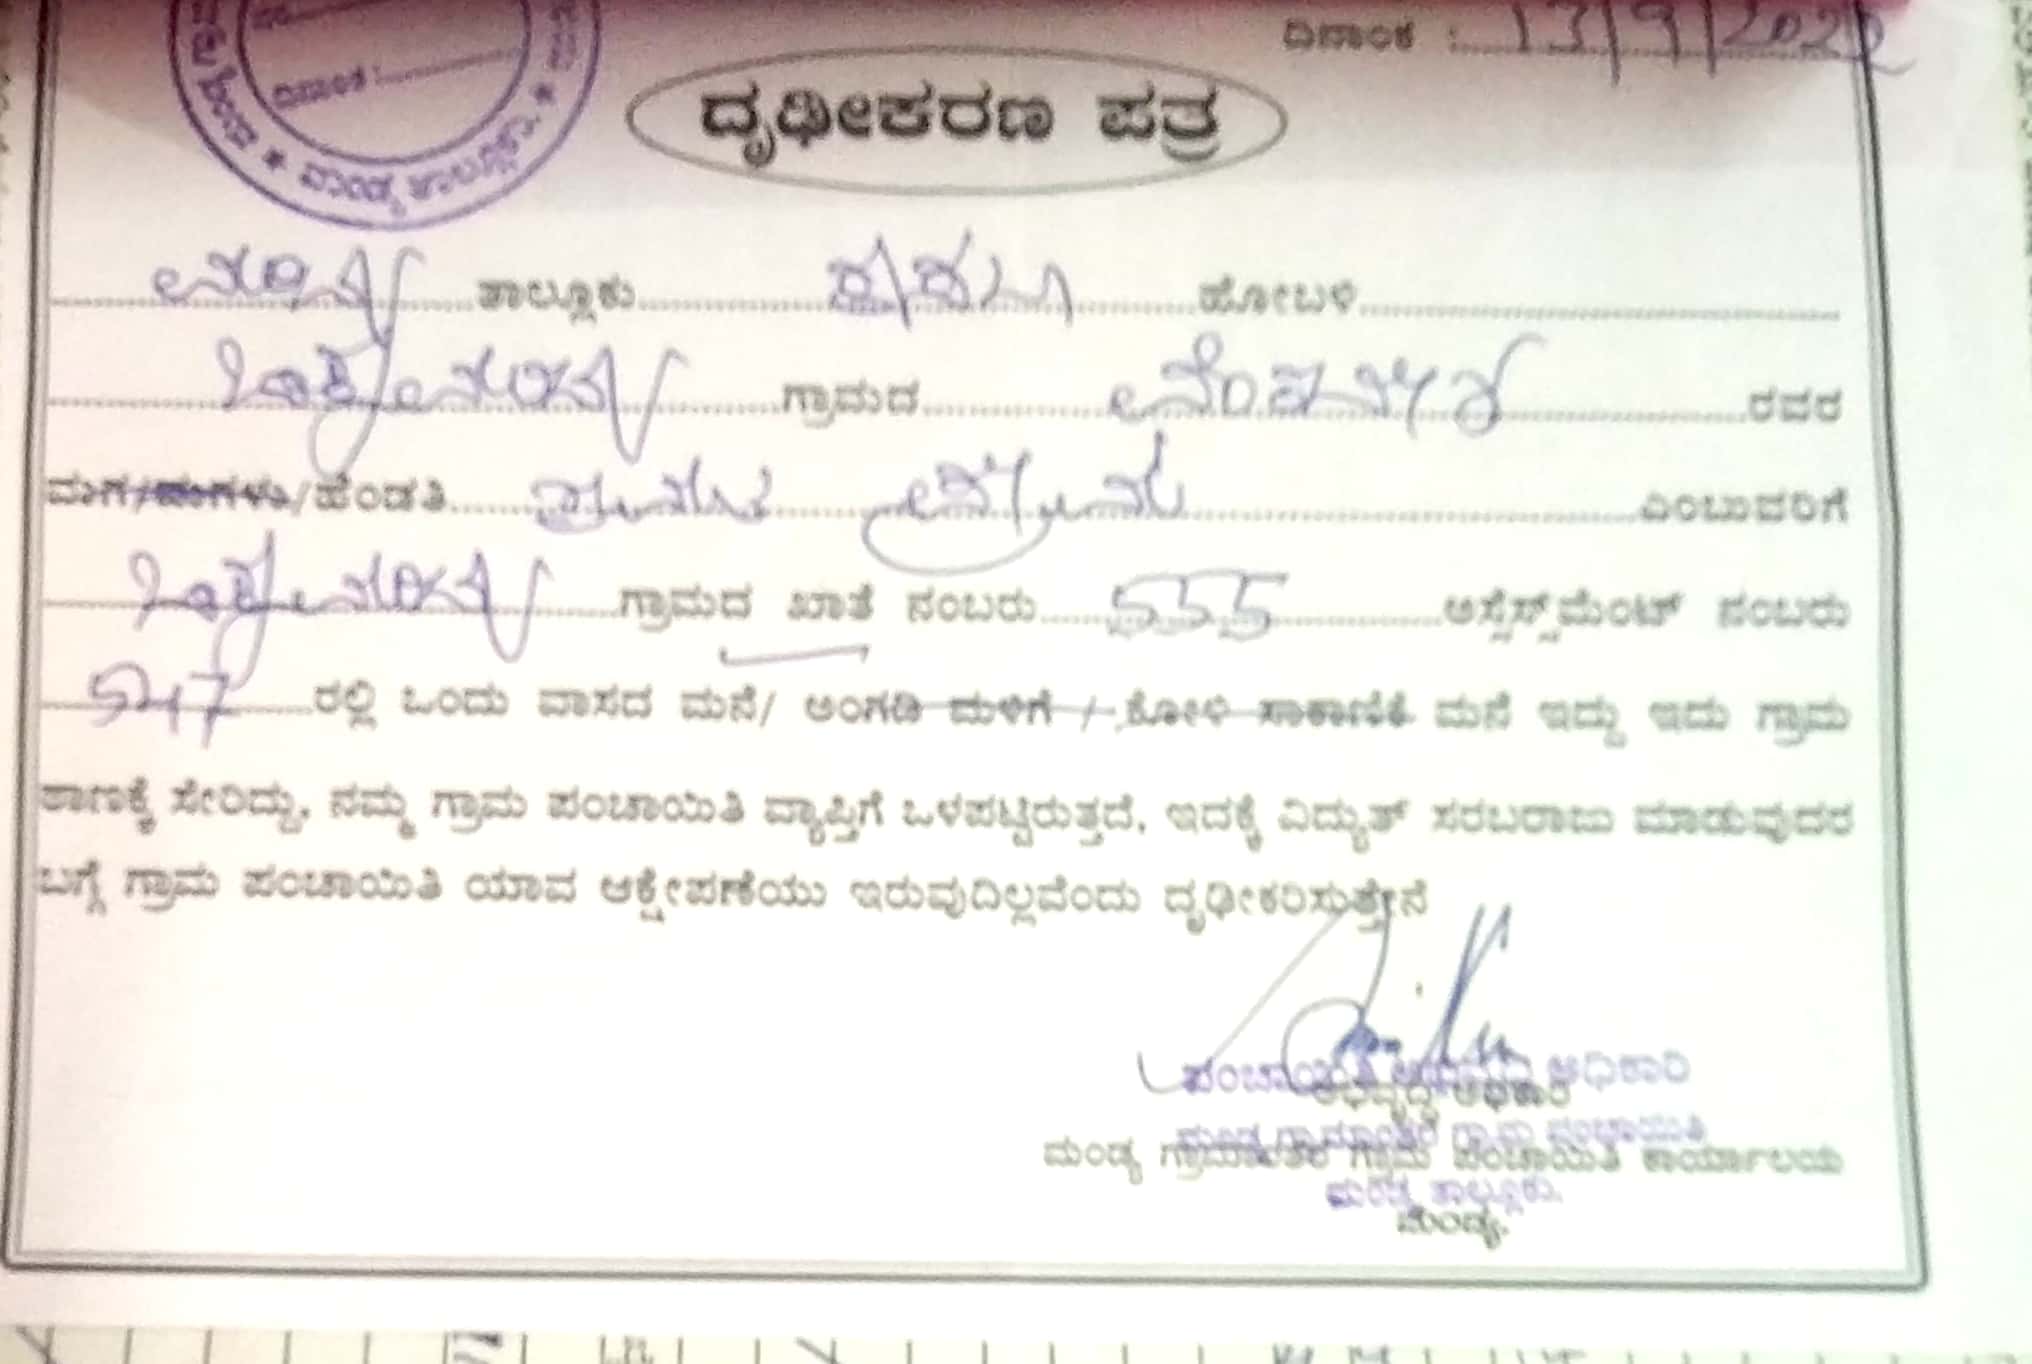 ದಿನಾಂಕ : 13/9/2022
ದಿನಾಂಕ :
* ಮಂಡ್ಯ ತಾಲ್ಲೂಕು. *
ದೃಢೀಕರಣ ಪತ್ರ
ಮಂಡ್ಯ ತಾಲ್ಲೂಕು ಕಸಬಾ ಹೋಬಳಿ
ಗ್ರಾಮದ ರವರ
ಮಗ/ಮಗಳು/ಹೆಂಡತಿ ಎಂಬುವರಿಗೆ
ಗ್ರಾಮದ ಖಾತೆ ನಂಬರು 555 ಅಸ್ಸೆಸ್ಸ್‌ಮೆಂಟ್ ನಂಬರು
547 ರಲ್ಲಿ ಒಂದು ವಾಸದ ಮನೆ/ ಅಂಗಡಿ ಮಳಿಗೆ / ಕೋಳಿ ಸಾಕಾಣಿಕೆ ಮನೆ ಇದ್ದು ಇದು ಗ್ರಾಮ
ಠಾಣಕ್ಕೆ ಸೇರಿದ್ದು, ನಮ್ಮ ಗ್ರಾಮ ಪಂಚಾಯಿತಿ ವ್ಯಾಪ್ತಿಗೆ ಒಳಪಟ್ಟಿರುತ್ತದೆ. ಇದಕ್ಕೆ ವಿದ್ಯುತ್ ಸರಬರಾಜು ಮಾಡುವುದರ
ಬಗ್ಗೆ ಗ್ರಾಮ ಪಂಚಾಯಿತಿ ಯಾವ ಆಕ್ಷೇಪಣೆಯು ಇರುವುದಿಲ್ಲವೆಂದು ದೃಢೀಕರಿಸುತ್ತೇನೆ
ಪಂಚಾಯಿತಿ ಅಭಿವೃದ್ಧಿ ಅಧಿಕಾರಿ
ಅಭಿವೃದ್ಧಿ ಅಧಿಕಾರಿ
ಮಂಡ್ಯ ಗ್ರಾಮಾಂತರ ಗ್ರಾಮ ಪಂಚಾಯಿತಿ
ಮಂಡ್ಯ ಗ್ರಾಮಾಂತರ ಗ್ರಾಮ ಪಂಚಾಯಿತಿ ಕಾರ್ಯಾಲಯ
ಮಂಡ್ಯ ತಾಲ್ಲೂಕು.
ಮಂಡ್ಯ.